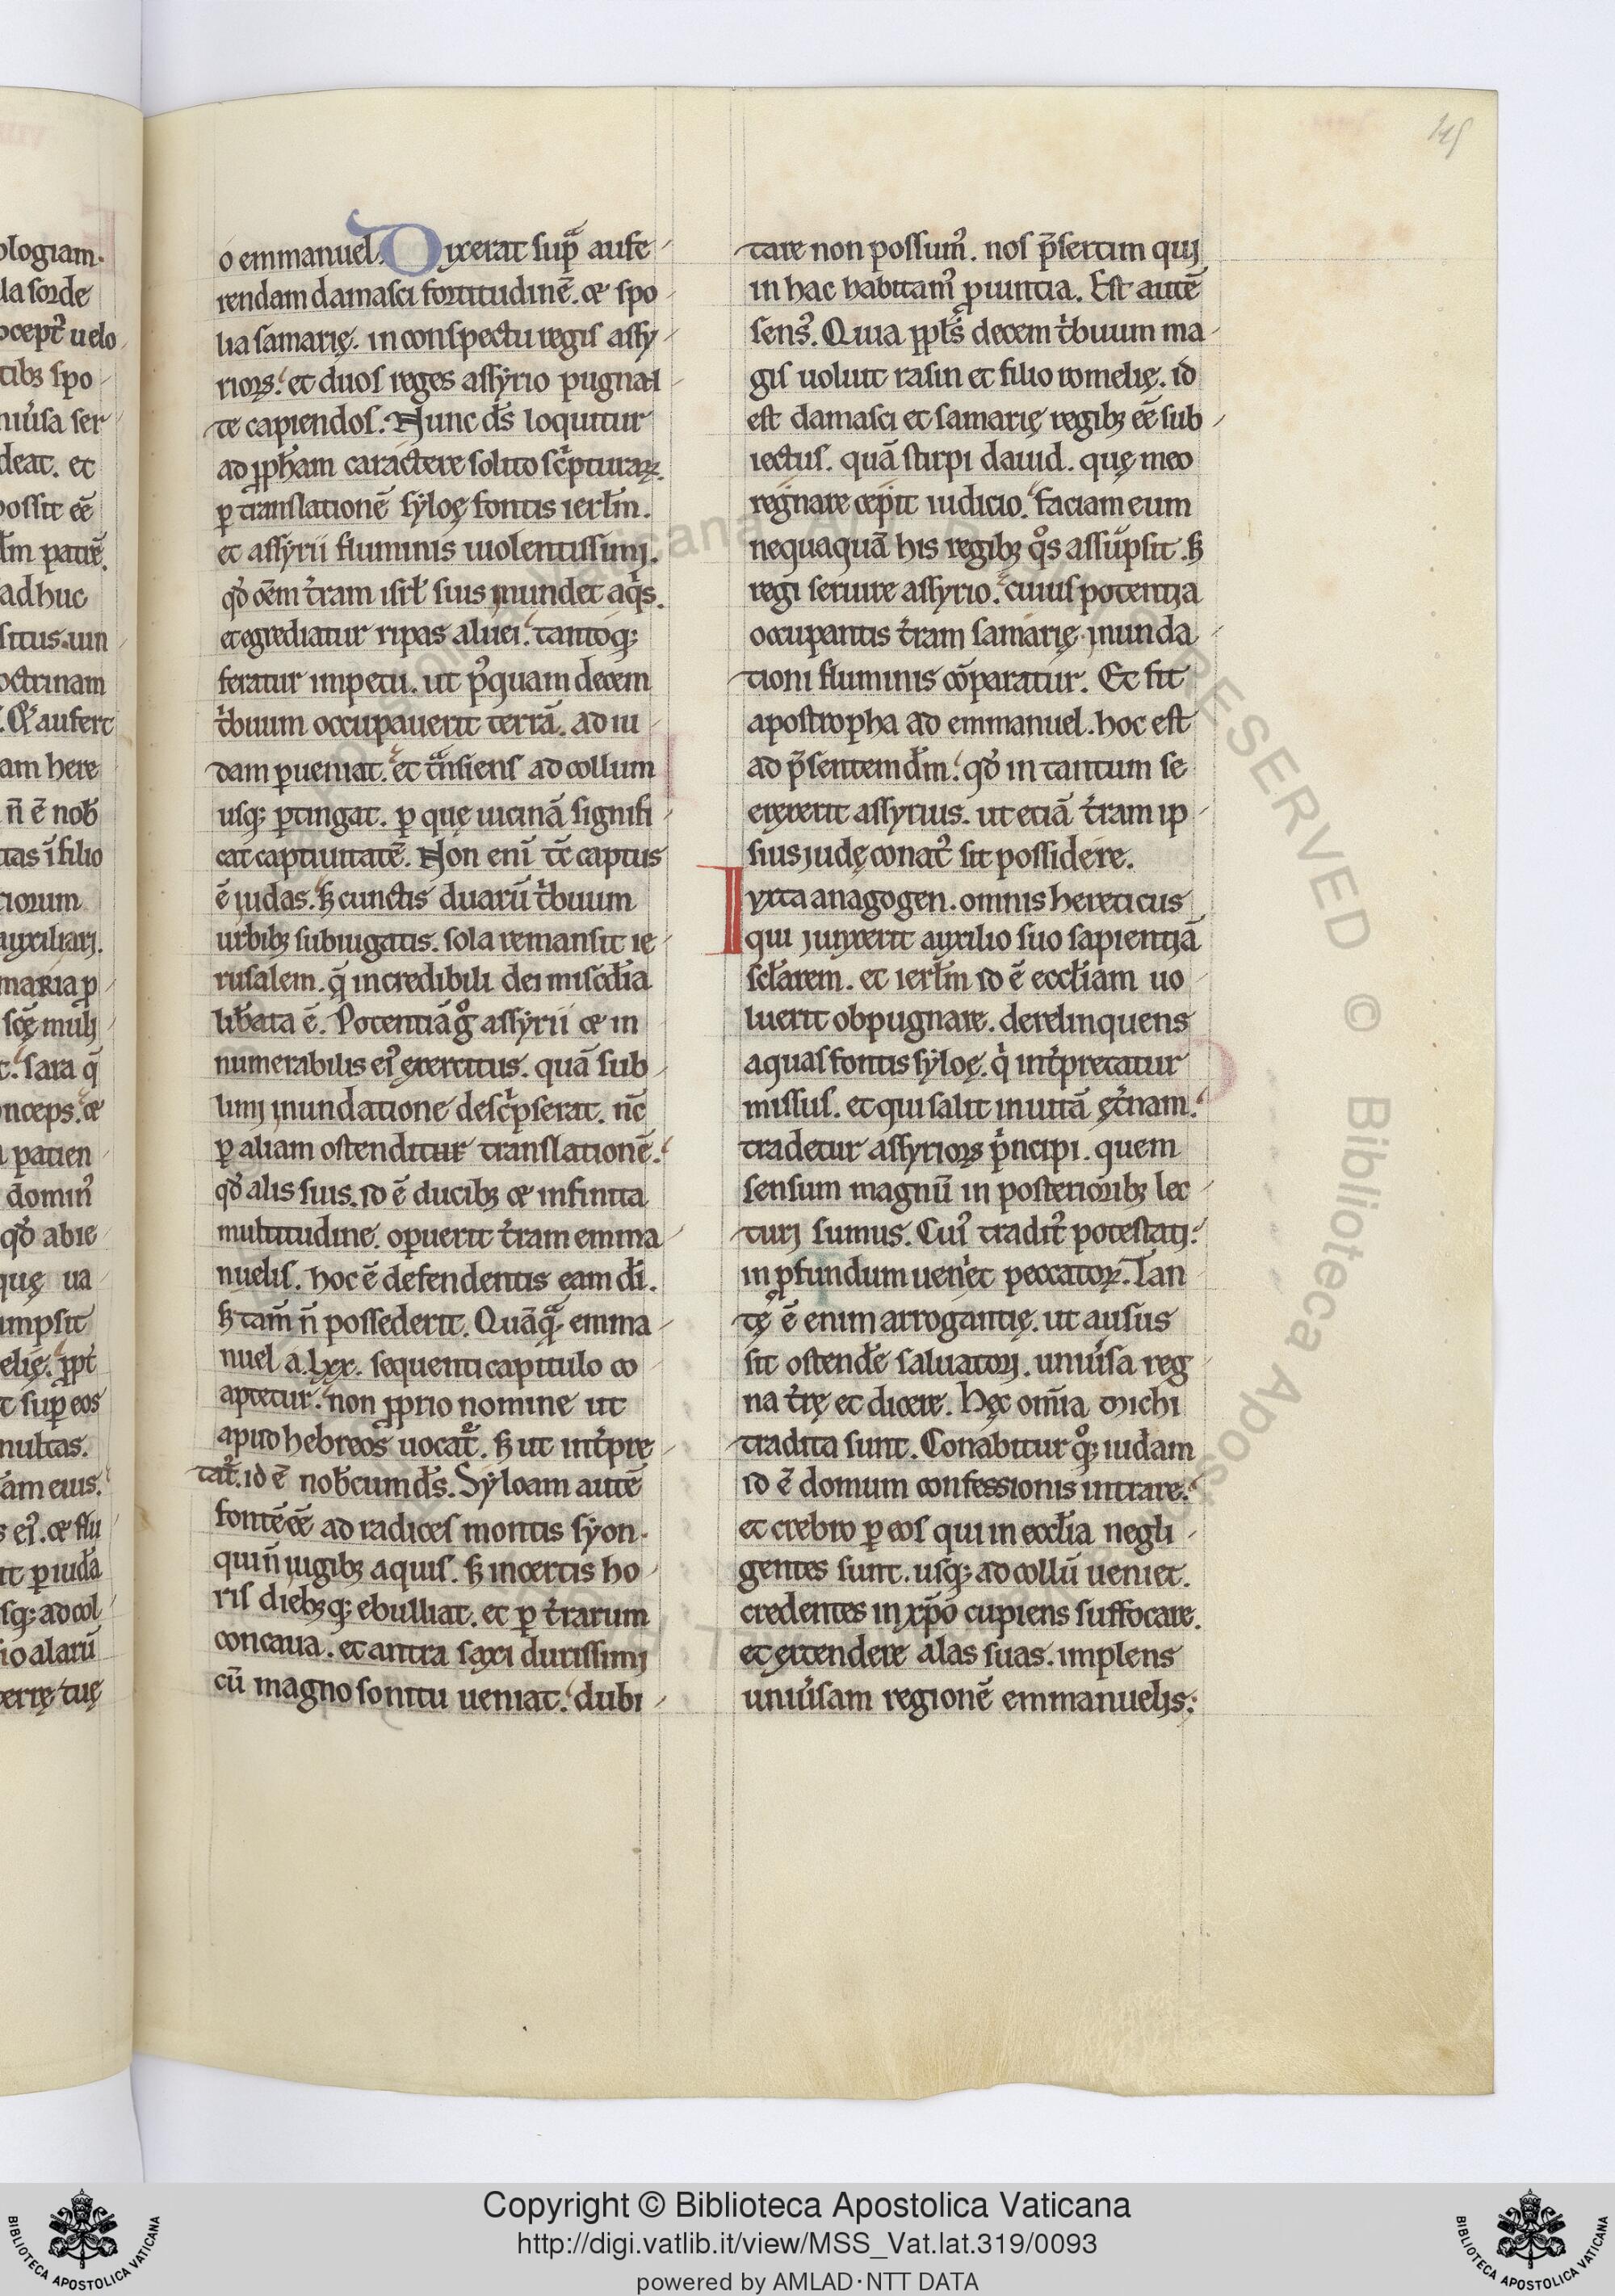 145
ologiam.
la sorde
ocept᷒ uelo
tibꝫ spo
niu͛sa ser
deat. et
possit ee̅
l̅m patre̅.
adhuc
situs. uin
octrinam
aufert
am here
n̅ e̅ nob̅
tas i̅ filio
tiorum
auxiliarj.
maria ꝑ
sce̜̅ mulj
t. sara q̅
nceps. ⁊
patien
d̅omin᷒
qđ abie
que̜ ua
umpsit
elie̜. ꝓpt̅
t suꝑ eos
multas.
am eius.
s ei᷒. ⁊ flu
it ꝑ iuda
sqꝫ ad col
io alaru̅
terre̜ tue̜
o emmanuel. Dixerat supͣ aufe
rendam damasci fortitudine̅. ⁊ spo
lia samarie̜. in conspectu regis assy
rioꝝ. et duos reges assyrio pugnan
te capiendos. Nunc ds̅ loquitur
ad ꝓph̅am caractere solito scͥpturaꝝ.
ꝑ translatione̅ syloe̜ fontis ierl̅m.
et assyrii fluminis uiolentissimj.
qđ oe̅m t͛ram isrl̅ suis jnundet aqͥs.
et egrediatur ripas aluei. tantoqꝫ
feratur impetu. ut p᷒quam decem
tͥbuum occupauerit terra̅. ad iu
dam ꝑueniat. et tͣnsiens ad collum
usqꝫ ꝑtingat. ꝑ que̜ uicina̅ signifi
cat captiuitate̅. Non eni̅ tc̅ captus
e̅ judas. sꝫ cunctis duaru̅ tͥbuum
urbibꝫ subiugatis. sola remansit ie
rusalem. q̅ incredibili dei mis̅cd̅ia
lib̅ata e̅. Potentia̅ gͦ assyrii ⁊ in
numerabilis ei᷒ exercitus. qua̅ sub
limj jnundatione descͥpserat. nc̅
ꝑ aliam ostenditur translatione̅.
qđ alis suis. id e̅ ducibꝫ ⁊ infinita
multitudine. operuerit t͛ram emma
nuelis. hoc e̅ defendentis eam di̅.
sꝫ tam̅ n̅ possederit. Qua̅qͣ. emma
nuel a .lxx. sequenti capitulo co
aptetur. non ꝓprio nomine ut
apud hebreos uocat᷒. sꝫ ut int͛pre
tat᷒. id e̅ nob̅cum ds̅. Syloam aute̅
fonte̅ ee̅ ad radices montis syon.
qui n̅ jugibꝫ aquis. sꝫ incertis ho
ris diebꝫqꝫ ebulliat. et ꝑ t͛rarum
concaua. et antra saxi durissimj
cu̅ magno sonitu ueniat. dubi
tare non possum᷒. nos p̅sertim quj
in hac habitam᷒ ꝓuintia. Est aute̅
sens᷒. Quia ppl̅s decem tͥbuum ma
gis uoluit rasin et filio romelie̜. id
est damasci et samarie̜ regibꝫ ee̅ sub
iectus. qua̅ stirpi dauid. que̜ meo
regnare cepit iudicio. faciam eum
nequaqua̅ his regibꝫ qͦs assu̅psit. sꝫ
regi seruire assyrio. cuius potentja
occupantis t͛ram samarie̜. jnunda
tioni fluminis co̅paratur. Et fit
apostropha ad emmanuel. hoc est
ad p̅sentem dm̅. qđ in tantum se
erexerit assyrius. ut etia̅ t͛ram ip
sius jude̜ conat᷒ sit possidere.
Iuxta anagogen. omnis hereticus
qui junxerit auxilio suo sapientja̅
scl̅arem. et ierl̅m id e̅ eccl̅iam uo
luerit obpugnare. derelinquens
aquas fontis syloe̜. qͥ int͛pretatur
missus. et qui salit in uita̅ e̜t͛nam.
tradetur assyrioꝝ pͥncipi. quem
sensum magnu̅ in posterioribꝫ lec
turj sumus. Cui᷒ tradit᷒ potestatj.
in ꝓfundum uen͛it peccatoꝝ. Tan
te̜ e̅ enim arrogantie̜. ut ausus
sit ostende̅ saluatorj. uniu͛sa reg
na t͛re̜ et dicere. he̜c om̅ia michi
tradita sunt. Conabitur qͦqꝫ iudam
id e̅ domum confessionis intrare.
et crebro ꝑ eos qui in eccl̅ia negli
gentes sunt. usqꝫ ad collu̅ ueniet.
credentes in xp̅o cupiens suffocare.
et extendere alas suas. implens
uniu͛sam regione̅ emmanuelis.
Copyright © Biblioteca Apostolica Vaticana
http://digi.vatlib.it/view/MSS_Vat.lat.319/0093
powered by AMLAD·NTT DATA
BIBLIOTECA APOSTOLICA VATICANA
BIBLIOTECA APOSTOLICA VATICANA